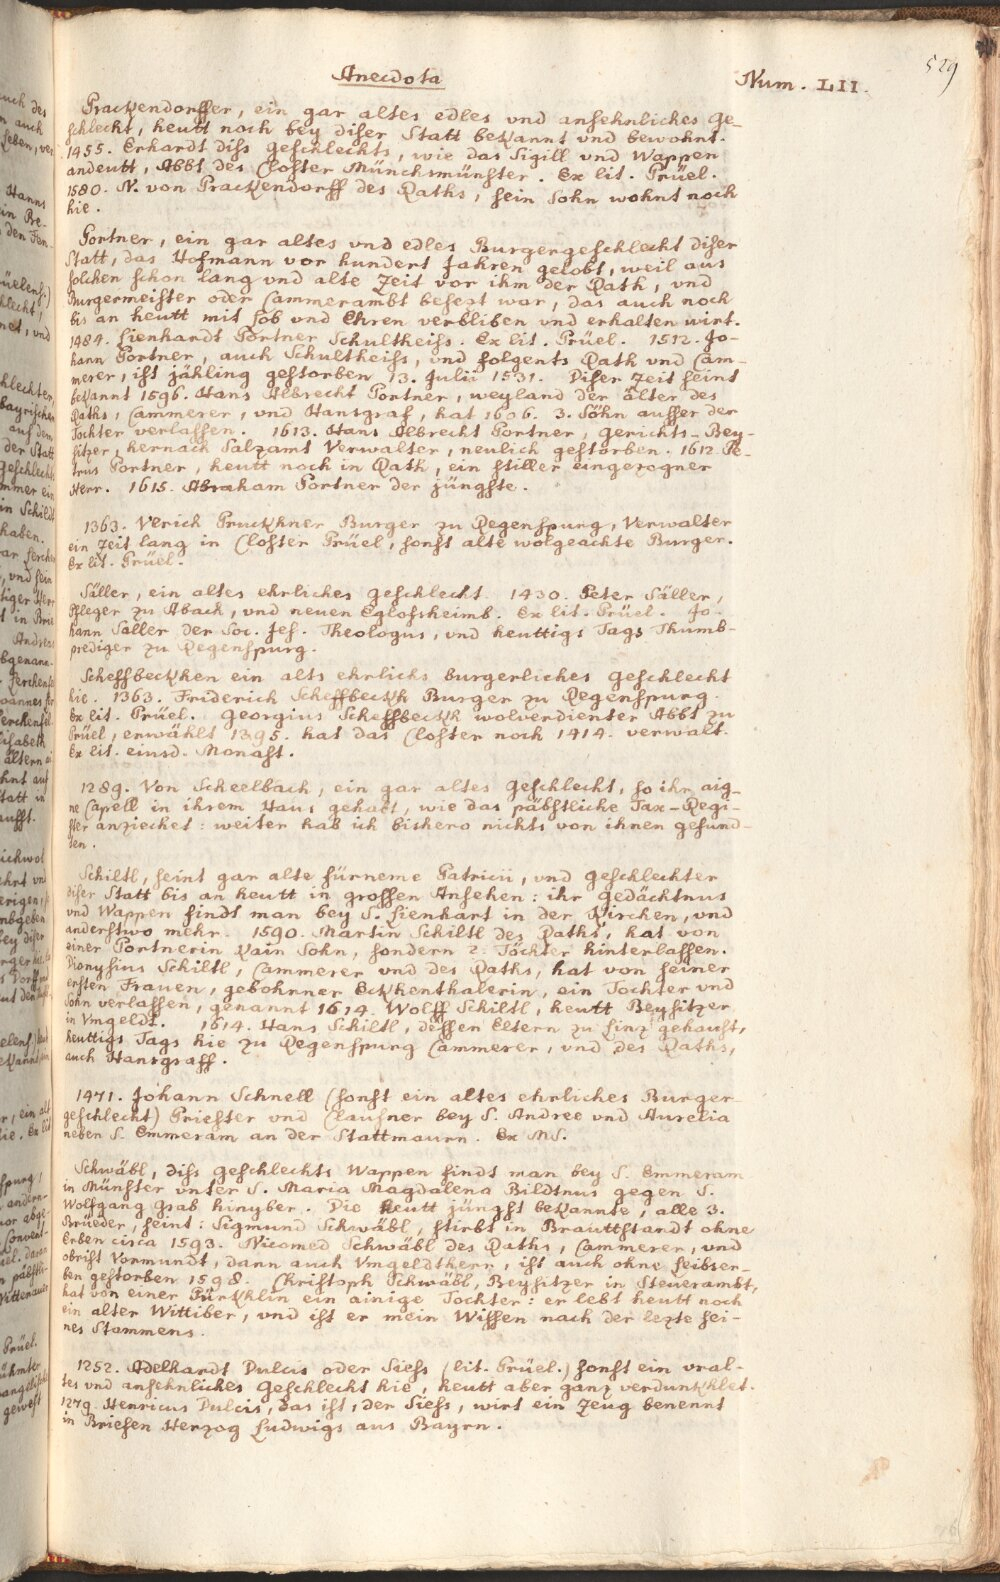 529
Anecdota
Num. LII.
Prackendorffer, ein gar altes edles vnd ansehnliches Ge-
schlecht, heutt noch bey diser Statt bekannt vnd bewohnt.
1455. Erhardt diss geschlechts, wie das Sigill vnd Wappen
andeutt, Abbt des Closter Münchsmünster. Ex lit. Prüel.
1580. N. von Prackendorff des Raths, sein Sohn wohnt noch
hie.
Portner, ein gar altes vnd edles Burgergeschlecht diser
Statt, das Hofmann vor hundert Jahren gelobt, weil aus
solchen schon lang vnd alte Zeit vor ihm der Rath, vnd
Burgermeister oder Cammerambt besezt war, das auch noch
bis an heutt mit Lob vnd Ehren verbliben vnd erhalten wirt.
1484. Lienhardt Portner Schultheiss. Ex lit. Prüel. 1512. Jo-
hann Portner, auch Schultheiss, vnd folgents Rath vnd Cam-
merer, ist jähling gestorben 13. Julii 1531. Diser Zeit seint
bekannt 1596. Hans Albrecht Portner, weyland der älter des
Raths, Cammerer, vnd Hansgraf, hat 1606. 3. Söhn ausser der
Tochter verlassen. 1613. Hans Albrecht Portner, Gerichts-Bey-
sitzer, hernach Salzamt Verwalter, neulich gestorben. 1612. Pe-
trus Portner, heutt noch in Rath, ein stiller eingezogner
Herr. 1615. Abraham Portner der jüngste.
1363. Vlrich Pruckhner Burger zu Regenspurg, Verwalter
ein Zeit lang in Closter Prüel, sonst alte wolgeachte Burger.
Ex lit. Prüel.
Säller, ein altes ehrliches Geschlecht. 1430. Peter Säller,
Pfleger zu Abach, vnd neuen Eglofsheimb. Ex lit. Prüel. Jo-
hann Saller der Soc. Jes. Theologus, vnd heuttigs Tags Thumb-
prediger zu Regenspurg.
Scheffbeckhen ein alts ehrlichs burgerliches Geschlecht
hie. 1363. Friderich Scheffbeckh Burger zu Regenspurg.
Ex lit. Prüel. Georgius Scheffbeckh wolverdienter Abbt zu
Prüel, erwählt 1395. hat das Closter noch 1414. verwalt.
Ex lit. einsd. Monast.
1289. Von Scheelbach, ein gar altes Geschlecht, so ihr aig-
ne Capell in ihrem Haus gehabt, wie das päbstliche Tax-Regi-
ster anziechet: weiter hab ich bishero nichts von ihnen gefund-
den.
Schiltl, seint gar alte fürneme Patricii, vnd Geschlechter
diser Statt bis an heutt in grossen Ansehen: ihr Gedächtnus
vnd Wappen findt man bey S. Lienhart in der Kirchen, vnd
anderstwo mehr. 1590. Martin Schiltl des Raths, hat von
einer Portnerin kain Sohn, sondern 2. Töchter hinterlassen.
Dionysius Schiltl, Cammerer vnd des Raths, hat von seiner
ersten Frauen, gebohrner Eckhenthalerin, ein Tochter vnd
Sohn verlassen, genannt 1614. Wolff Schiltl, heutt Beysitzer
in Vmgeldt. 1614. Hans Schiltl, dessen Eltern zu Linz gehaust,
heuttigs Tags hie zu Regenspurg Cammerer, vnd des Raths,
auch Hansgraff.
1471. Johann Schnell (sonst ein altes ehrliches Burger-
geschlecht) Priester vnd Clausner bey S. Andree vnd Aurelia
neben S. Emmeram an der Stattmaurn. Ex MS.
Schwäbl, diss Geschlechts Wappen findt man bey S. Emmeram
in Münster vnter S. Maria Magdalena Bildnus gegen S.
Wolfgang Grab hinyber. Die heutt jüngst bekannte, alle 3.
Brüeder, seint: Sigmund Schwäbl, stirbt in Brauttstandt ohne
Erben circa 1593. Nicomed Schwäbl des Raths, Cammerer, vnd
obrist Vormundt, dann auch Vmgeldtherr, ist auch ohne Leibser-
ben gestorben 1598. Christoph Schwäbl, Beysitzer in Steuerambt,
hat von einer Pürkhlin ein ainige Tochter: er lebt heutt noch
ein alter Wittiber, vnd ist er mein Wissen nach der lezte sei-
nes Stammens.
1252. Adelhardt Dulcis oder Siess (lit. Prüel.) sonst ein vral-
tes vnd ansehnliches Geschlecht hie, heutt aber ganz verdunkhlet.
1279. Henricus Dulcis, das ist, der Siess, wirt ein Zeug benennt
in Briefen Herzog Ludwigs aus Bayrn.